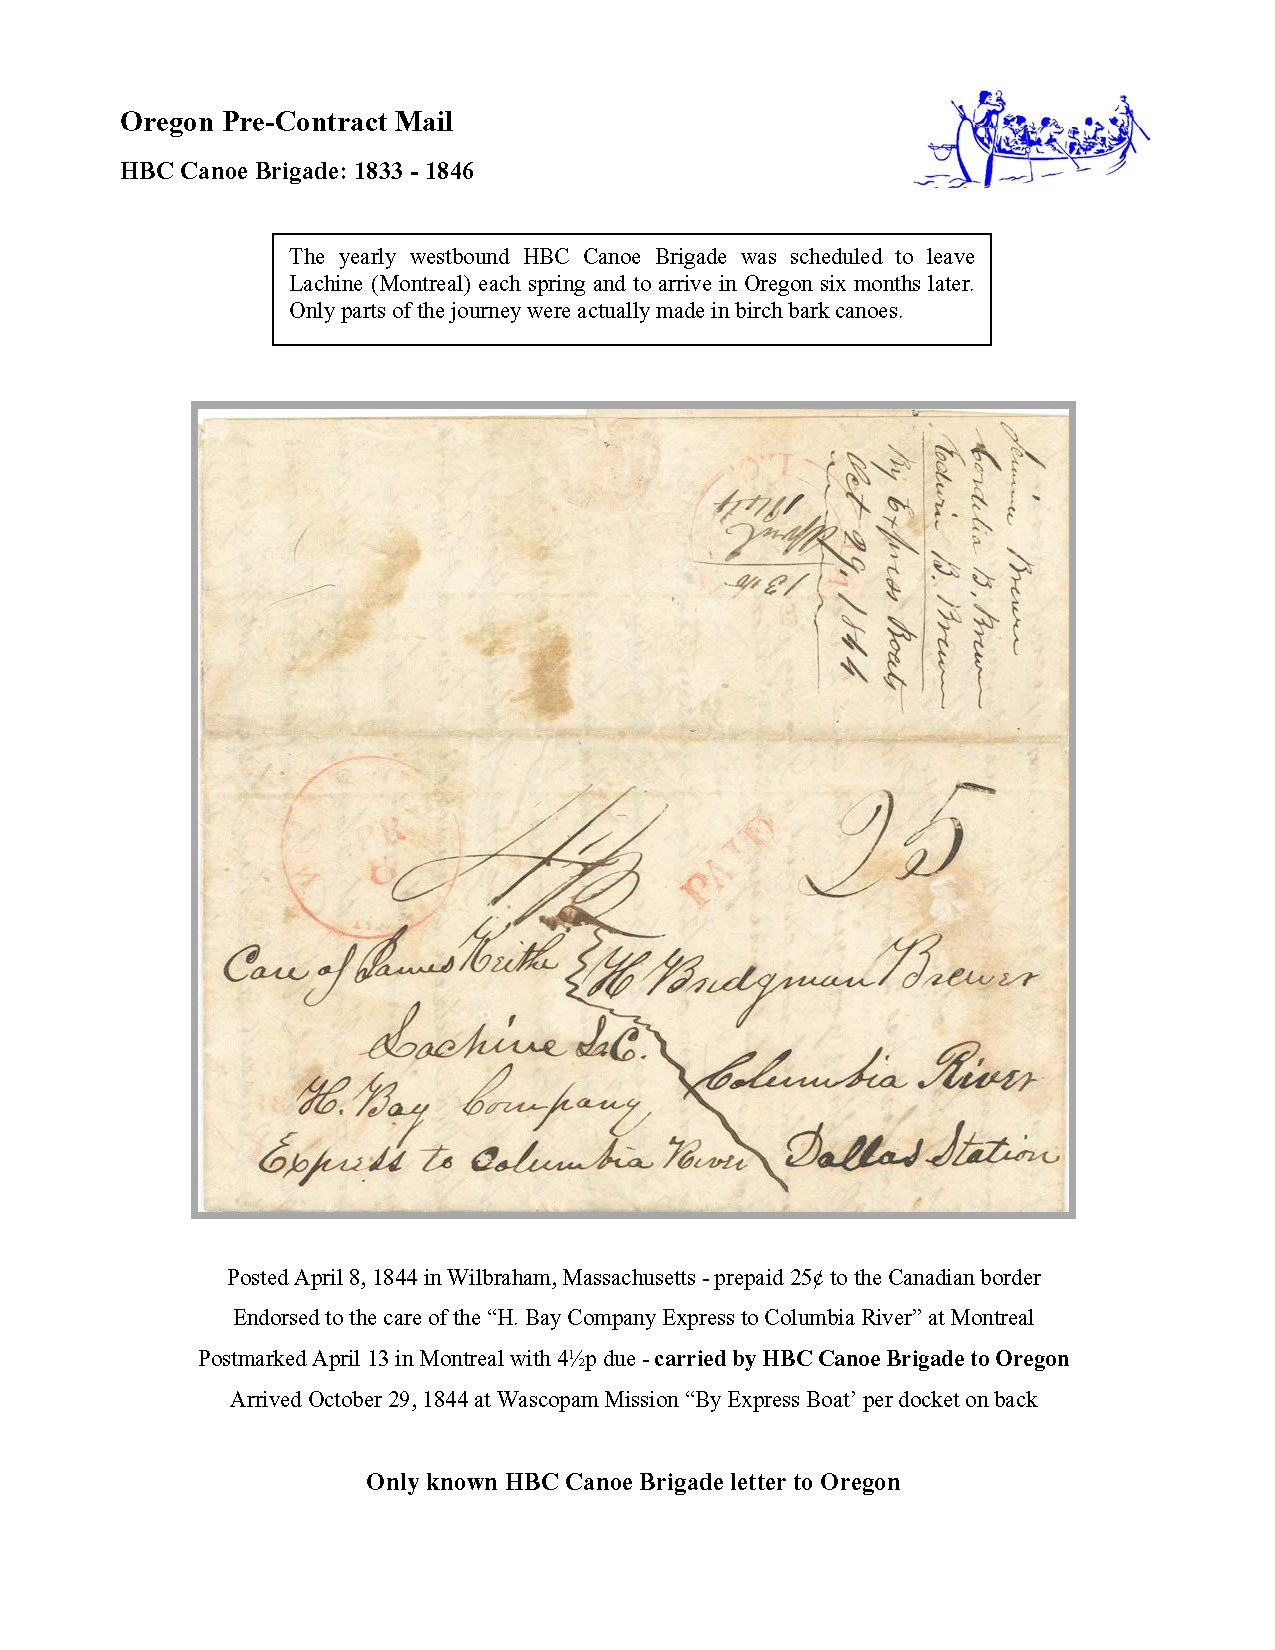 Oregon Pre-Contract Mail
HBC Canoe Brigade: 1833 - 1846
The yearly westbound HBC Canoe Brigade was scheduled to leave
Lachine (Montreal) each spring and to arrive in Oregon six months later.
Only parts of the journey were actually made in birch bark canoes.
Brewer
Cordelia B. Brewer
Edwin B. Brewer
By Express Boats
Oct 29, 1844
April
13
PAID
25
4½
Care of James Keith
H Bridgman Brewer
Lachine L.C.
Columbia River
H. Bay Company
Express to Columbia River
Dallas Station
Posted April 8, 1844 in Wilbraham, Massachusetts - prepaid 25¢ to the Canadian border
Endorsed to the care of the “H. Bay Company Express to Columbia River” at Montreal
Postmarked April 13 in Montreal with 4½p due - carried by HBC Canoe Brigade to Oregon
Arrived October 29, 1844 at Wascopam Mission “By Express Boat’ per docket on back
Only known HBC Canoe Brigade letter to Oregon